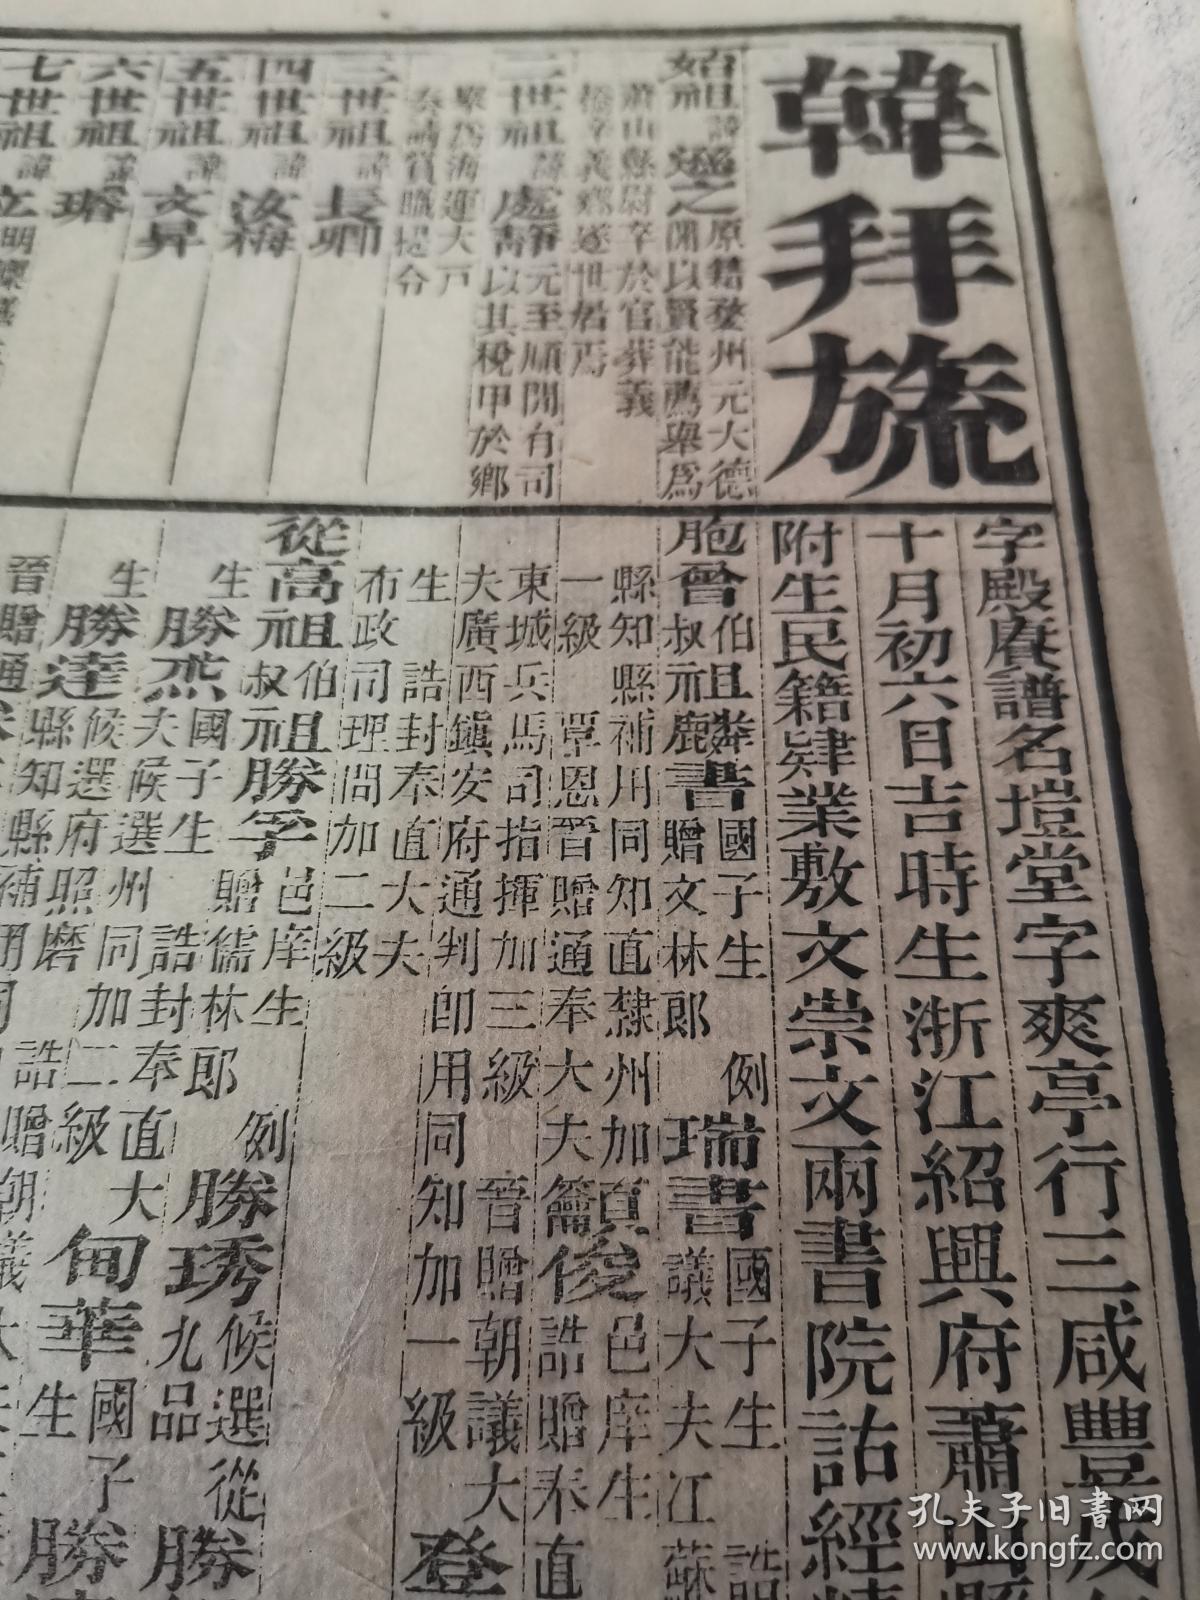 韓拜旒
始祖諱遜之原籍婺州元大德
間以賢能薦舉爲
蕭山縣尉卒於官葬義
橋辛義鄉遂世居焉
二世祖諱處靜元至順間有司
以其稅甲於鄉
眾為海運大戶
奏請賞職提令
三世祖諱長卿
四世祖諱汝梅
五世祖諱文昇
六世祖諱瑃
七世祖諱立明
字殿賡譜名塏堂字爽亭行三咸豐戊
十月初六日吉時生浙江紹興府蕭山縣
附生民籍肄業敷文崇文兩書院詁經精
胞曾伯叔祖麟書國子生贈文林郎
例
瑞書國子生議大夫江蘇
誥
縣知縣補用同知直隸州加
一級覃恩晉贈通奉大夫
俊邑庠生
誥贈奉直
東城兵馬司指揮加三級晉贈朝議大
夫廣西鎮安府通判即用同知加一級
登
生誥封奉直大夫
布政司理問加二級
從高祖伯叔祖勝孚邑庠生
贈儒林郎
例
勝琇候選從
九品
勝
生勝烝國子生
夫候選州同加二級
誥封奉直大
甸華國子
生
勝
生勝達候選府照磨
縣知縣補用同
誥贈朝議大
晉贈通